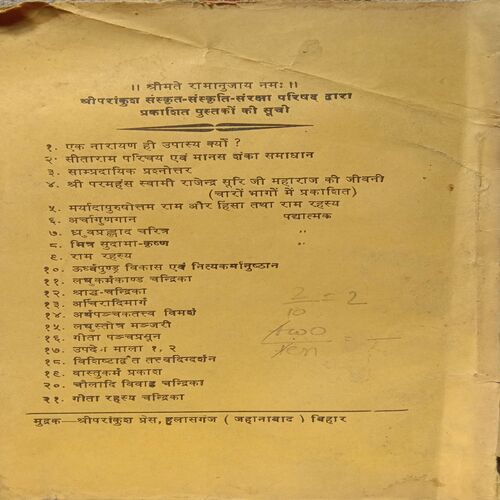 ।। श्रीमते रामानुजाय नमः ।।
श्रीपरांकुश संस्कृत-संस्कृति-संरक्षा परिषद द्वारा
प्रकाशित पुस्तकों की सूची
१. एक नारायण ही उपास्य क्यों ?
२. सीताराम परिचय एवं मानस शंका समाधान
३. साम्प्रदायिक प्रश्नोत्तर
४. श्री परमहंस स्वामी राजेन्द्र सूरि जी महाराज की जीवनी
(चारों भागों में प्रकाशित)
५. मर्यादापुरुषोत्तम राम और हिंसा तथा राम रहस्य
६. अर्चागुणगान पद्यात्मक
७. ध्रुवप्रह्लाद चरित्र "
८. मित्र सुदामा-कृष्ण "
९. राम रहस्य
१०. ऊर्ध्वपुण्ड्र विकास एवं नित्यकर्मानुष्ठान
११. लघुकर्मकाण्ड चन्द्रिका
१२. श्राद्ध-चन्द्रिका
१३. अचिरादिमार्ग
१४. अर्थपञ्चकतत्त्व विमर्श
१५. लघुस्तोत्र मञ्जरी
१६. गीता पञ्चप्रसून
१७. उपदेश माला १, २
१८. विशिष्टाद्वैत तत्त्वदिग्दर्शन
१९. वास्तुकर्म प्रकाश
२०. चौलादि विवाह चन्द्रिका
२१. गीता रहस्य चन्द्रिका
मुद्रक—श्रीपरांकुश प्रेस, हुलासगंज ( जहानाबाद ) बिहार